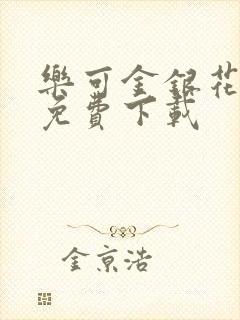 樂可金銀花
免費下載
金京浩